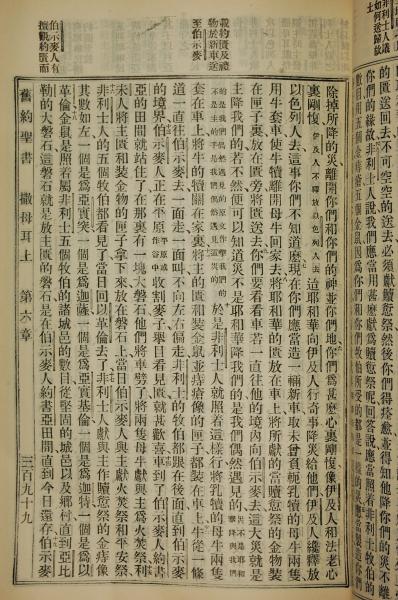 非利士人議
如何送歸故
土
的匱送回不可空空的送去必須獻贖愆祭然後你們得痊愈並得知他降你們的災
你們的緣故非利士人說我們應當用甚麼獻為贖愆祭呢回答說應當照着非利士牧伯的
數目用五個金痔瘡五個金鼠因為你們和你們牧伯所受的都是一樣的災
載約匱及禮
物於新車送
至伯示麥
伯示麥人有
擅觀約匱而
除掉所降的災離開你們和你們的神並你們地你們爲甚麼心裏剛愎像伊及人和法老心
裏剛愎伊及人不釋放以色列人去這耶和華向伊及人行奇事降災給他們伊及人纔釋放
以色列人去這事你們不知道麼現在你們應當造一輛新車取未曾負軛乳犢的母牛兩隻
用牛套車使牛犢離開母牛回家去將耶和華的匱放在車上將所獻的當贖愆祭的金物裝
在匣子裏放在匱旁將匱送去你們要看看車若一直往他的境內向伯示麥去這大災就是
主降我們的若不然便可以知道災不是耶和華降我們的是我們偶然遇見的
於是非利士人就照着這樣行將乳犢的母牛兩隻
套在車上將牛的犢關在家裏將主的匱和裝金鼠並痔瘡像的匣子都裝在車上牛從一條
道一直往伯示麥去一面走一面叫不向左右偏走非利士的牧伯都跟在後面直到伯示麥
的境界伯示麥人正在平原平原或作谷中收割麥子舉目看見匱就甚歡喜車到了伯示麥人約書
亞的田間就站住了在那裏有一塊大磐石他們將車劈了將兩隻母牛獻與主爲火焚祭利
未人將主匱和裝金物的匣子拿下來放在大磐石上當日伯示麥人與主獻火焚祭和平安祭
非利士人的五個牧伯都看見了當日回以革倫去了非利士人獻與主作贖愆祭的金痔像
其數如左一個是爲亞實突一個是爲迦薩一個是爲亞實基倫一個是爲迦特一個是爲以
革倫金鼠是照着屬非利士五個牧伯的諸城邑的數目從堅固的城邑以及鄉村直到亞比
勒的大磐石這磐石就是放主匱的磐石是在伯示麥人約書亞田間直到今日還存伯示麥
舊約聖書 撒母耳上 第六章 三百九十九